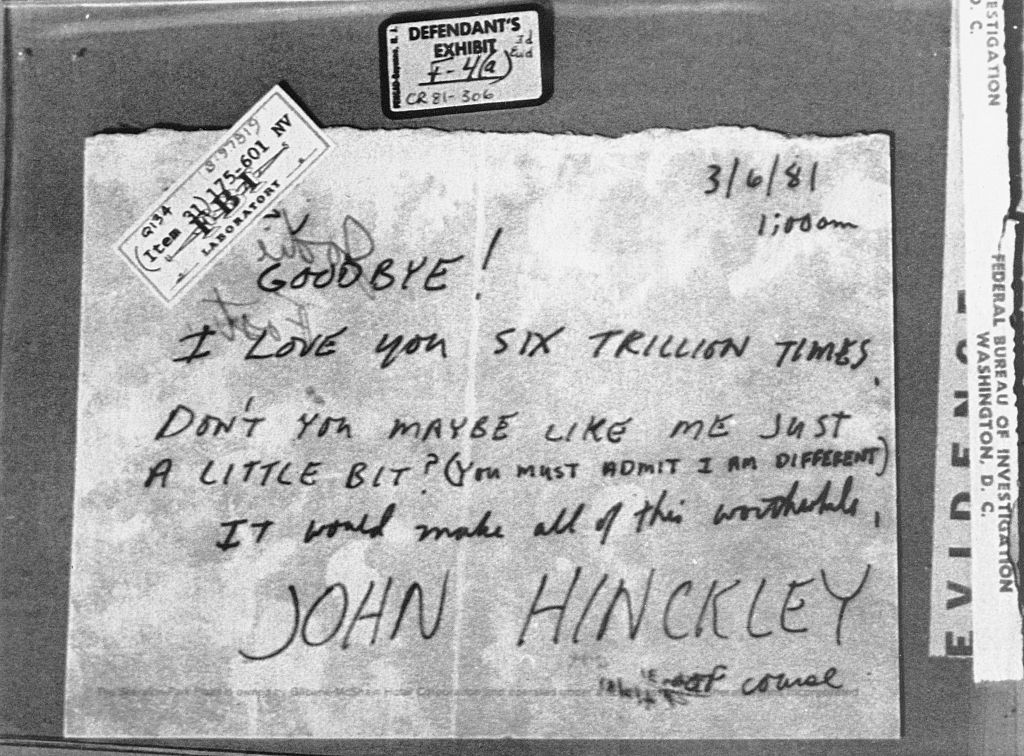 DEFENDANT'S
EXHIBIT
F-4(a)
Id
Evid
CR 81-306
Q134
(Item 31) 175-601 NV
FBI
LABORATORY
3/6/81
1:00am
Jodie
GOODBYE!
Fost
I LOVE you SIX TRILLION TIMES.
DON'T YOU MAYBE LIKE ME JUST
A LITTLE BIT? (YOU MUST ADMIT I AM DIFFERENT)
IT would make all of this worthwhile.
JOHN HINCKLEY
of course
EVIDENCE
FEDERAL BUREAU OF INVESTIGATION
WASHINGTON, D. C.
ESTIGATION
D. C.